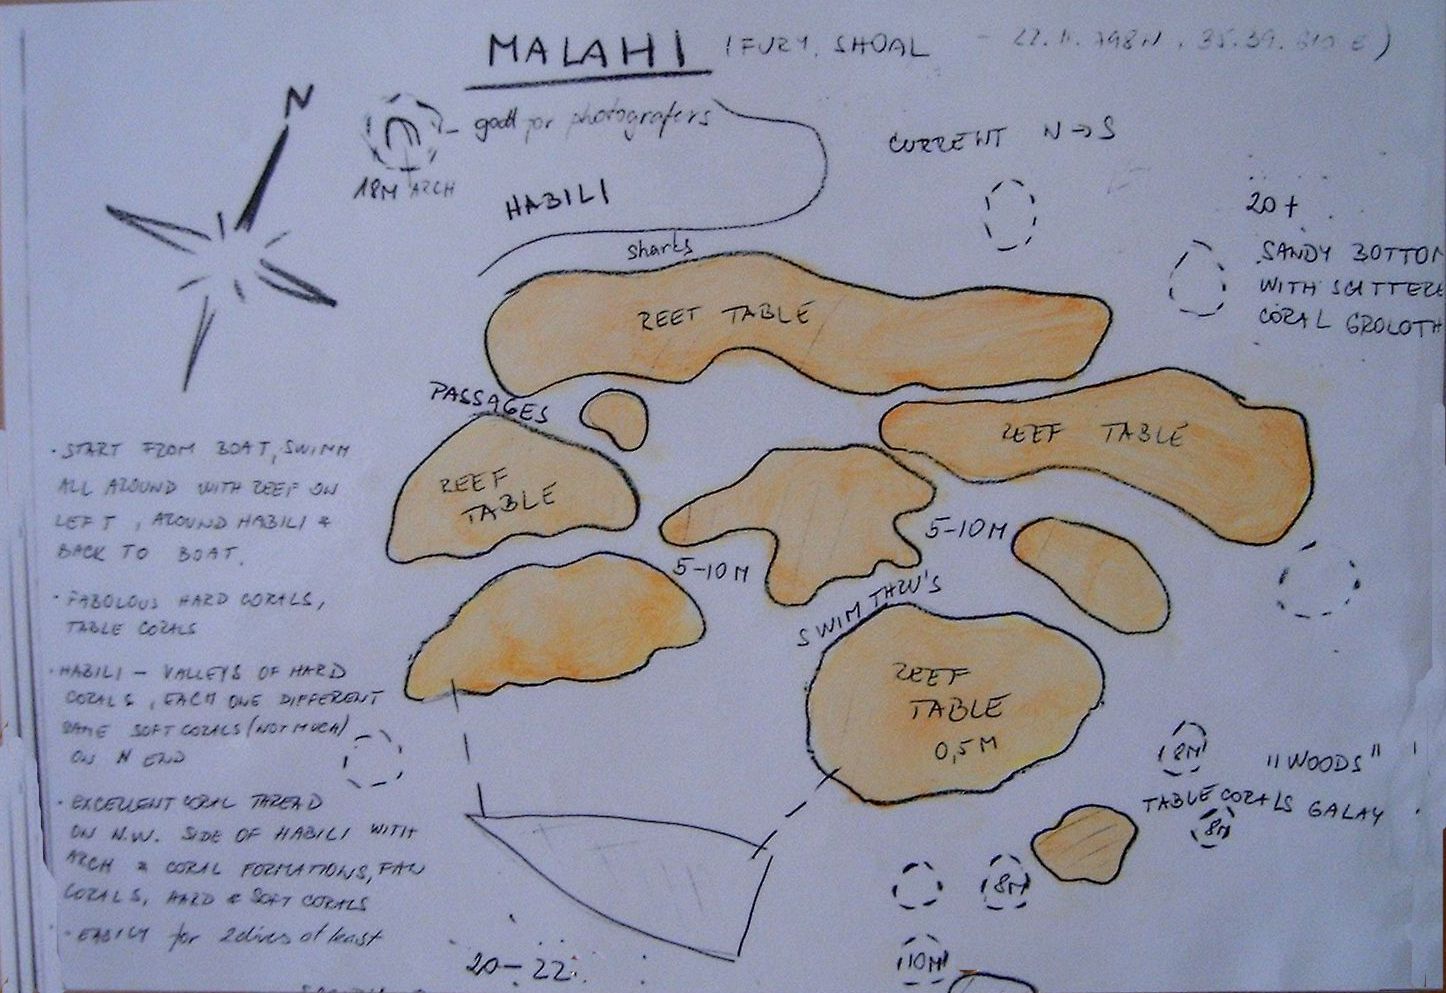 MALAHI (FURY SHOAL - 22.11.798N, 35.39.610 E)
N
good for photografers
18M ARCH
CURRENT N→S
HABILI
sharks
20+
SANDY BOTTOM
WITH SCATTERE
CORAL GROLOTH
REET TABLE
PASSAGES
REEF TABLE
REEF
TABLE
5-10M
5-10M
SWIM THRU'S
REEF
TABLE
0,5M
· START FROM BOAT, SWIMM
ALL AROUND WITH REEF ON
LEFT, AROUND HABILI &
BACK TO BOAT.
· FABOLOUS HARD CORALS,
TABLE CORALS
· HABILI – VALLEYS OF HARD
CORALS, EACH ONE DIFFERENT
SAME SOFT CORALS (NOT MUCH)
ON N END
· EXCELLENT CORAL THREAD
ON N.W. SIDE OF HABILI WITH
ARCH & CORAL FORMATIONS, FAN
CORALS, HARD & SOFT CORALS
· EASILY for 2 dives at least
18M
"WOODS"
TABLE CORALS GALAY
8M
8M
10M
20-22